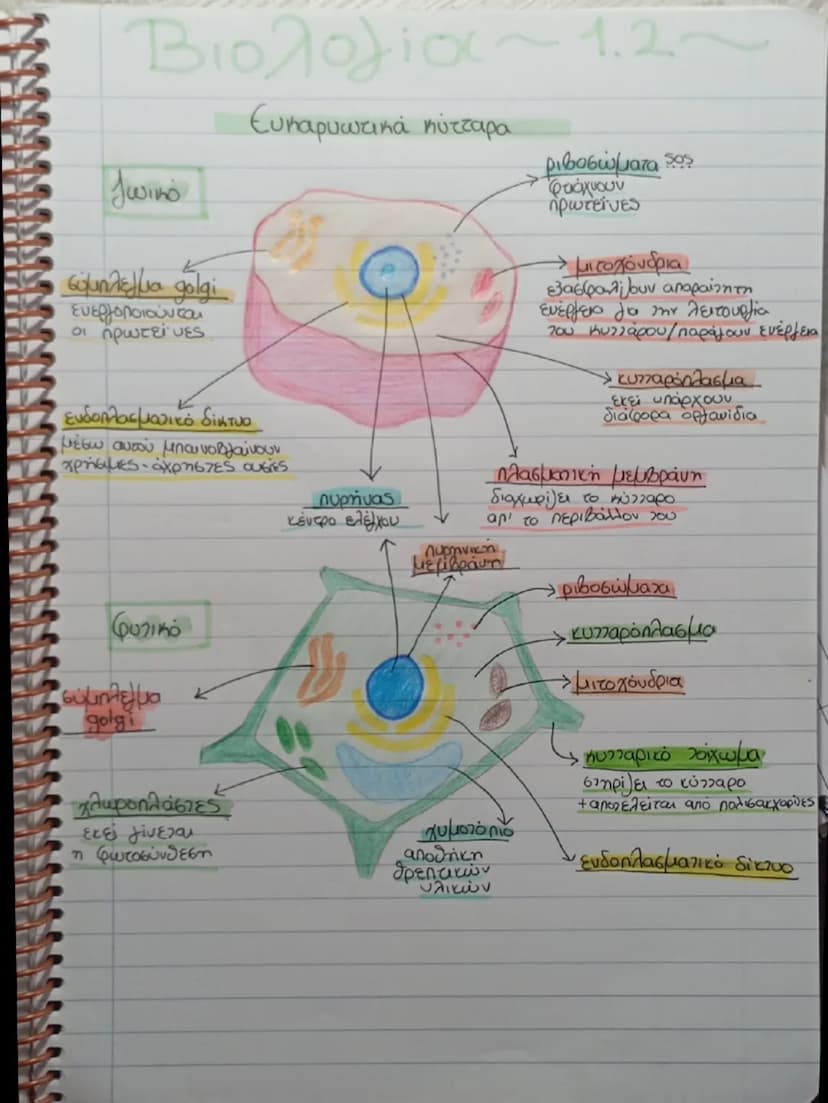 Βιολογία ~ 1.2 ~
Ευκαρυωτικά κύτταρα
Ζωικό
ριβοσώματα SOS
φτιάχνουν
πρωτεΐνες
σύμπλεγμα golgi
ενεργοποιούνται
οι πρωτεΐνες
μιτοχόνδρια
εξασφαλίζουν απαραίτητη
ενέργεια για την λειτουργία
του κυττάρου/παράγουν ενέργεια
κυτταρόπλασμα
εκεί υπάρχουν
διάφορα οργανίδια
ενδοπλασματικό δίκτυο
μέσω αυτού μπαινοβγαίνουν
χρήσιμες-άχρηστες ουσίες
πλασματική μεμβράνη
διαχωρίζει το κύτταρο
απ' το περιβάλλον του
πυρήνας
κέντρο ελέγχου
πυρηνική
μεμβράνη
Φυτικό
ριβοσώματα
κυτταρόπλασμα
μιτοχόνδρια
σύμπλεγμα
golgi
κυτταρικό τοίχωμα
στηρίζει το κύτταρο
+αποτελείται από πολυσακχαρίτες
χλωροπλάστες
εκεί γίνεται
η φωτοσύνθεση
χυμοτόπιο
αποθήκη
θρεπτικών
υλικών
ενδοπλασματικό δίκτυο